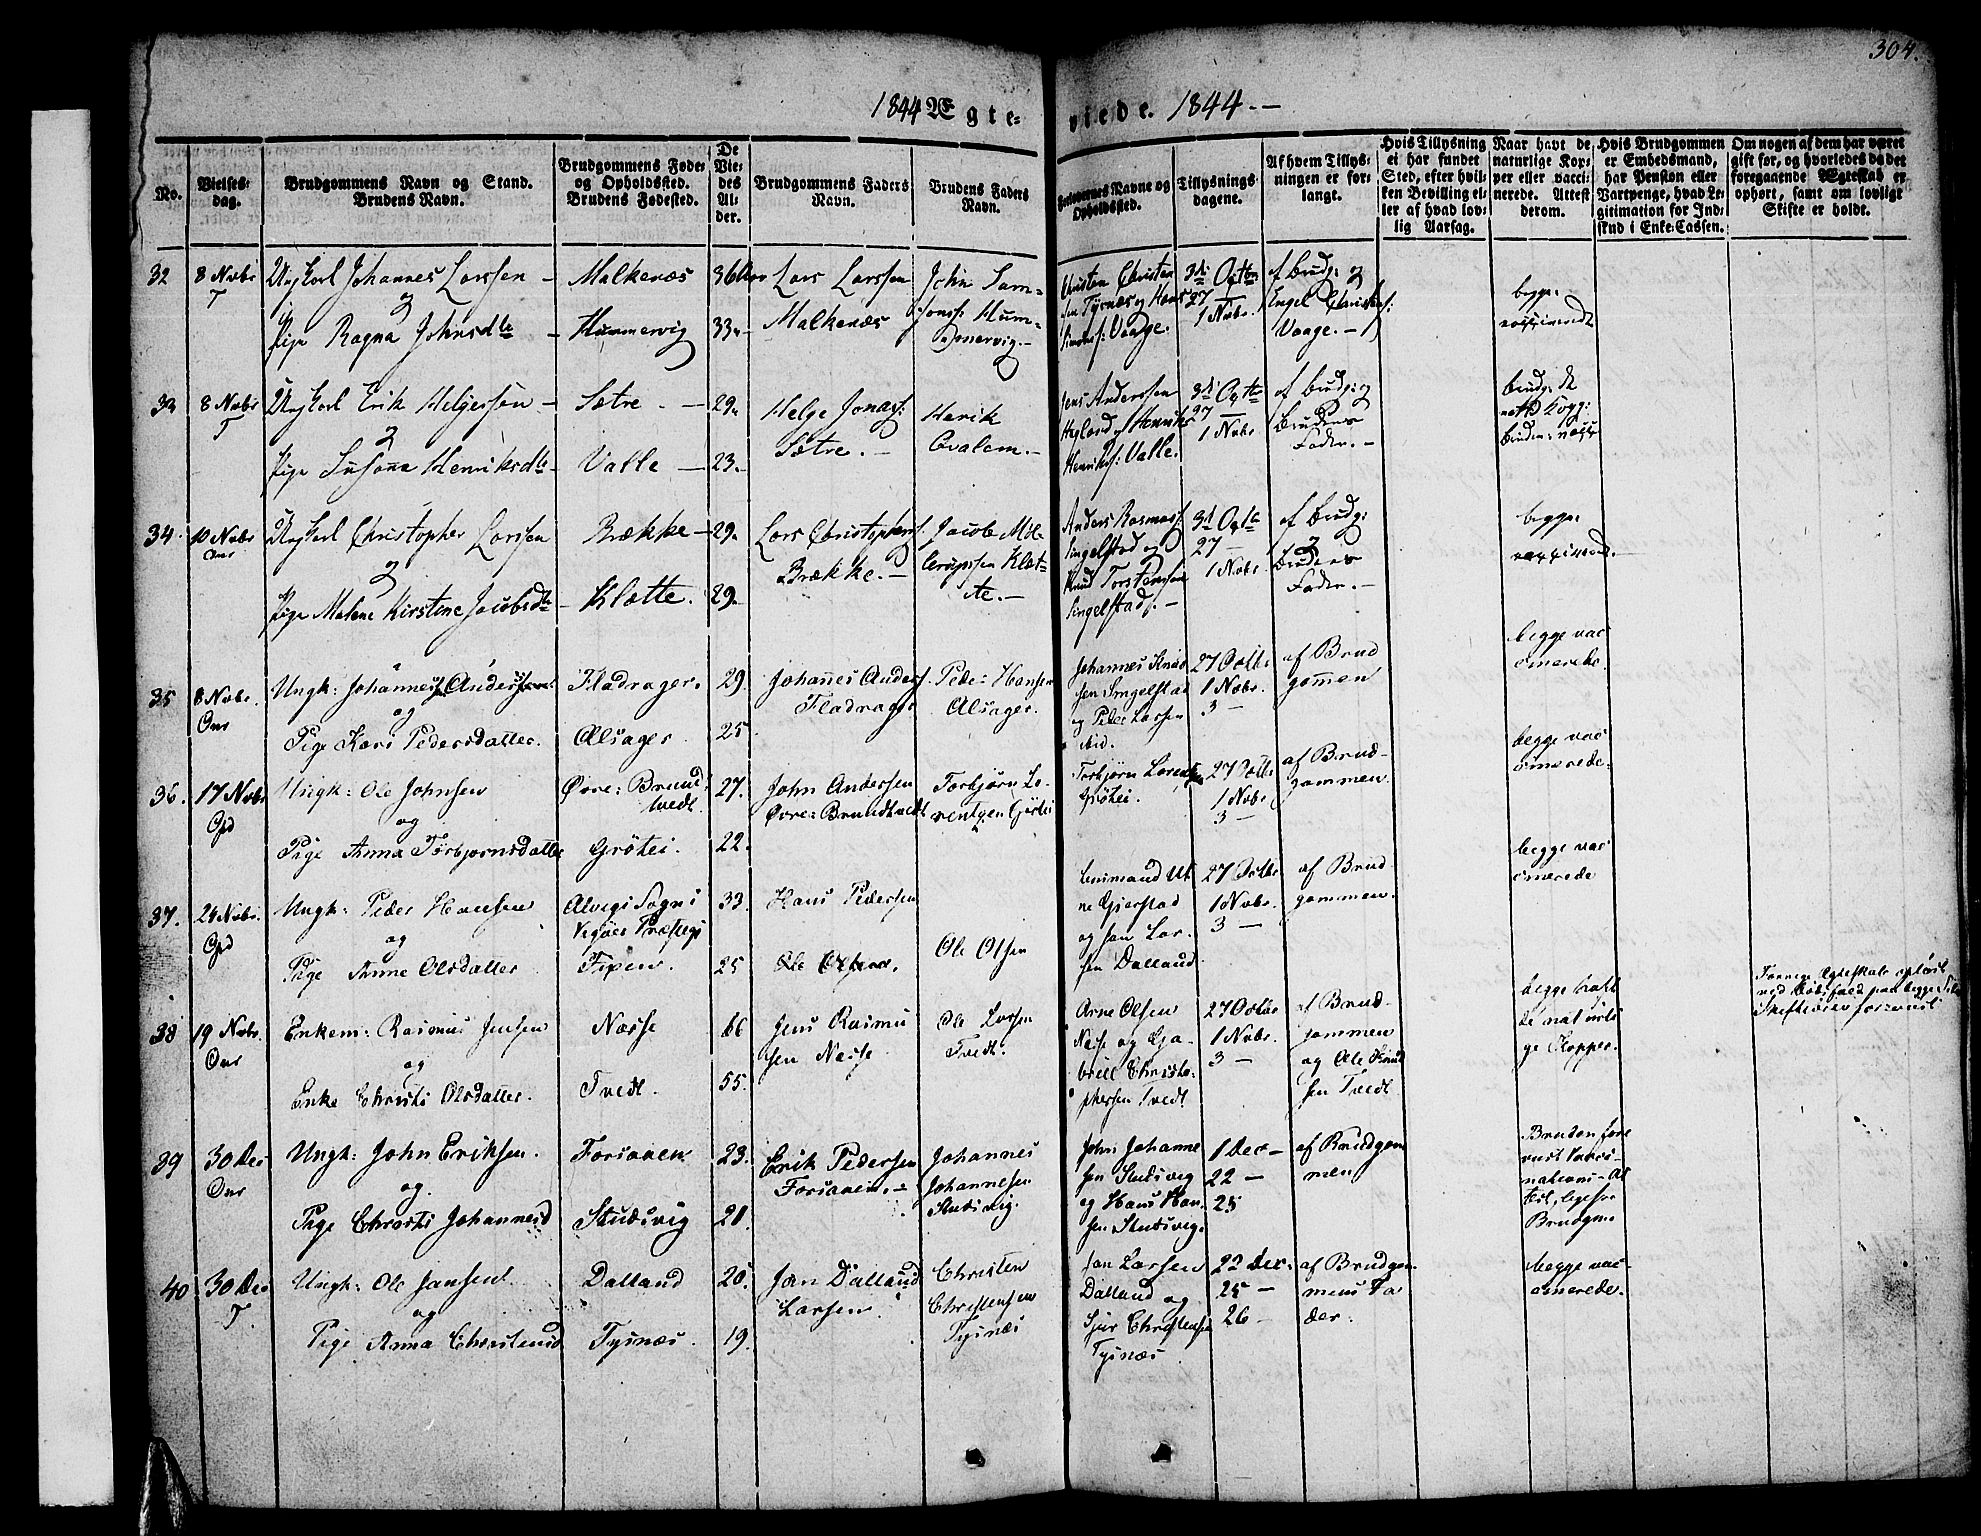 304.
1844 Ægte= viede. 1844. -
No.
Vielses-
dag.
Brudgommens Navn og Stand.
Brudens Navn.
Brudgommens Føde-
og Opholdssted.
Brudens Fødested.
De
Vie-
des
Al-
der.
Brudgommens Faders
Navn.
Brudens Faders
Navn.
Forlovernes Navne og
Opholdssted.
Tillysnings-
dagene.
Af hvem Tillys-
ningen er for-
langt.
Hvis Tillysning
ei har fundet
Sted, efter hvil-
ken Bevilling el-
ler af hvad lov-
lig Aarsag.
Naar havt de
naturlige Kop-
per eller vacci-
nerede. Attest
derom.
Hvis Brudgommen
er Embedsmand,
har Pension eller
Vartpenge, hvad Le-
gitimation for Ind-
skud i Enke-Cassen.
Om nogen af dem har været
gift før, og hvorledes da det
foregaaende Ægteskab er
ophørt, samt om lovligt
Skifte er holdt.
32
8 Novbr
T
Ungkarl Johannes Larssen -
og
Pige Ragna Johnsdtr -
Malkenæs
Hummervig
36
33
Lars Larssen
Malkenæs
John Sam=
sonss: Hum=
mervig. -
Christen Christen
sen Tysnæs og Hans
Simons: Vaage.
3di Octbr
27 -
1 Novbr.
af Brudg: og
Engel Christens:
Vaage. -
begge
vaccinerede
33
8 Novbr
T
Ungkarl Erik Helgessøn -
og
Pige Susanna Henriksdtr -
Sætre. -
Valle -
29
23. -
Helge Jonas:
Sætre. -
Henrik
Ovalem. -
Jens Anderssen
Hyland og Henrik
Henriks: Valle.
3di Octbr
27 -
1 Novbr
af Brudg: og
Brudens
Fader. -
Brudg: de
natl. Kopp:
Bruden: vacc
34
10 Novbr
Ons
Ungkarl Christopher Larssen
og
Pige Malene Kirstine Jacobsdtr -
Brække -
Klætte.
29
29. -
Lars Christophers.
Brække. -
Jacob Mol-
Klæt-
te. -
Anders Rasmus:
Singelstad og
Knud Torstensen
Singelstad. -
3di Octbr
27 -
1 Novbr.
af Brudg:
og
Brudens
Fader. -
begge
vaccinered. -
35
8 Novbr.
Ons
Ungk: Johannes Andersen
og
Pige Kari Pedersdatter.
Fladrager.
Alsager.
29.
25
Johanes Anders.
Fladrager
Peder Hansen
Alsager.
Johannes Knud
sen Singelstad
og Peder Larsen
ibid.
27 Octbr
1 Novbr.
3 -
af Brud
gommen
begge vac
cinerede.
36.
17 Novbr
Opd
Ungk: Ole Johnsen
og
Pige Anna Torbjørnsdatter
Øvre: Brund-
tvedt.
Grøtei.
27.
22.
John Andersen
Øvre: Brundtvedt
Torbjørn Lo-
rentzen Grøtei
Torbjørn Lorentzen
Grøtei.
27 Octbr
1 Novbr.
3 -
af Brud-
gommen.
begge vac
cinerede.
37.
24 Novbr.
Opd
Ungk: Peder Hansen
og
Pige Anne Olsdatter
Sogn i
Præsteg:
Fipen.
33.
25
Hans Pedersen
Ole Olsen.
Ole Olsen
ne Gierstad
og Jan Lar-
sen Dalland
27 Octbr
1 Novbr.
3 -
af Brud-
gommen.
begge vac
cinerede
38
19 Novbr.
Ons
Enkem: Rasmus Jensen
og
Enke Christi Olsdatter.
Næsse
Tvedt.
66
55.
Jens Rasmu
sen Næsse
Ole Larsen
Tvedt.
Arne Olsen
Næsse og Ga-
briel Christo-
phersen Tvedt
27 Octbr
1 Novbr.
3 -
af Brud-
gommen
og Ole Knud
sen Tvedt
begge havt
de naturli
ge Kopper.
Forrige Ægteskab opløst
ved Dødsfald paa begge Sider
39
30 Dec
Ons
Ungk: John Eriksen.
og
Pige Christi Johannesd
Forsanen
Studsvig
23.
21.
Erik Pedersen
Forsanen. -
Johannes
Johannesen
Studsvig.
John Johanne
sen Studsvig
og Hans Han-
sen Studsvig.
1 Dec -
22 -
25
af Brudgom
men
Bruden fore
viist Vacci-
nations-At
test, ligesaa
Brudgom
40
30 Dec
T.
Ungk: Ole Jansen
og
Pige Anna Christensd
Dalland
Tysnæs.
20.
19.
Jan Dalland
Larsen
Christen
Christensen
Tysnæs
Jan Larsen
Dalland og
Sjur Christensen
Tysnæs
22 Dec.
25 -
26 -
af Brudgom
mens Fa
der.
begge vac-
cinerede.